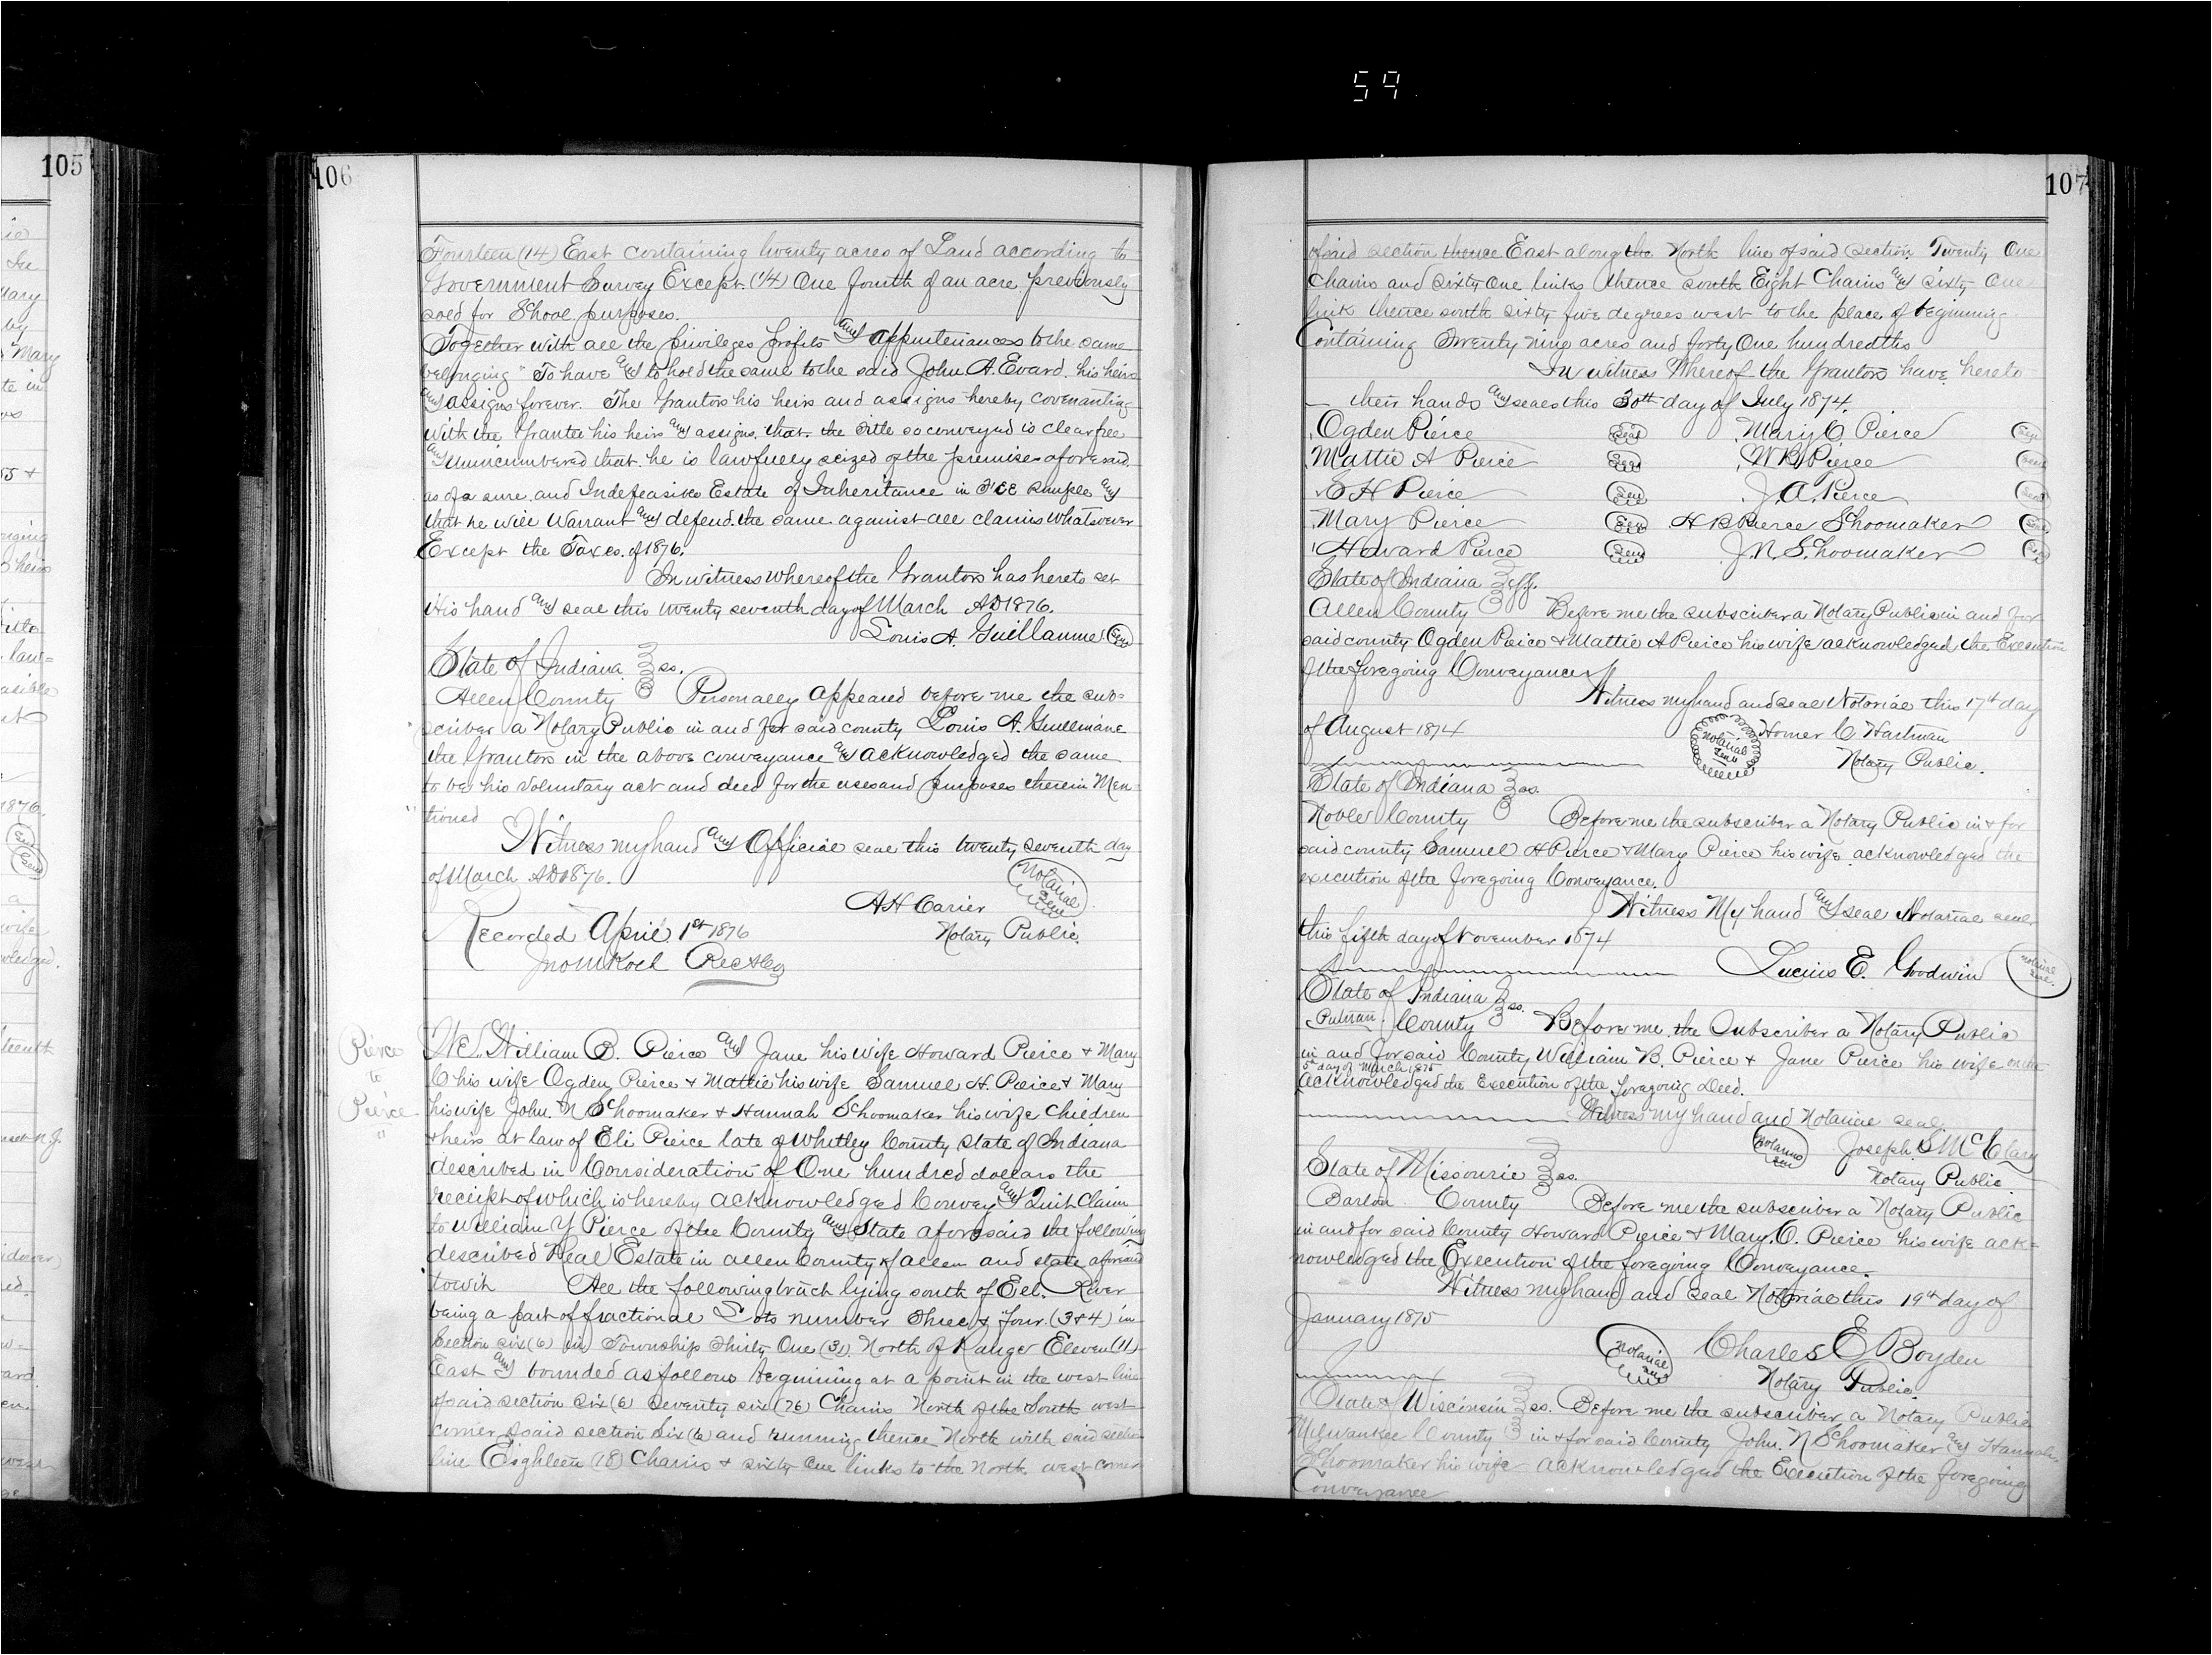 59
105
106
Fourteen (14) East containing twenty acres of Land according to
Government Survey Except (1/4) One fourth of an acre previously
sold for Shool purposes.
Together with all the privileges profits and appurtenances to the same
belonging " To have and to hold the same to the said John A. Evard. his heirs
and assigns forever. The Grantors his heirs and assigns hereby covenanting
with the Grantee his heirs and assigns. that the title so conveyed is clear free
and unincumbered that he is lawfully seized of the premises aforesaid.
as of a sure and Indefeasible Estate of Inheritance in Fee Simple and
that he will Warrant and defend the same against all claims whatsoever
Except the Taxes of 1876.
In witness whereof the Grantors has hereto set
His hand and seal this twenty seventh day of March AD 1876.
Louis A. Guillaume Seal
State of Indiana ss.
Allen County Personally appeared before me the sub=
scriber a Notary Public in and for said county Louis A. Guillmane
the Grantors in the above conveyance and acknowledged the same
to be his voluntary act and deed for the uses and purposes therein Men=
tioned
Witness my hand and Official seal this twenty seventh day
of March AD 1876.
Notarial Seal
A H Carier
Recorded April 1st 1876 Notary Public.
Jno M Koch Rec
Pierce
to
Pierce
"
We William B. Pierce and Jane his wife Howard Pierce & Mary
C his wife Ogden Pierce & Mattie his wife Samuel H. Pierce & Mary
his wife John. N Schoomaker & Hannah Schoomaker his wife Children
& heirs at law of Eli Pierce late of Whitley County State of Indiana
described in Consideration of One hundred dollars the
receipt of which is hereby acknowledged Convey and Quit Claim
to William Y Pierce of the County and State aforesaid the following
described Real Estate in allen County of allen and state aforesaid
towit All the following tract lying south of Eel. River
being a part of fractional Lots number Three & Four. (3 & 4) in
Section six (6) in Township Thirty One (31) North of Range Eleven (11)
East and bounded as follows beginning at a point in the west line
of said section six (6) seventy six (76) Chains North of the South west
corner of said section Six (6) and running thence North with said section
line Eighteen (18) Chains & sixty One links to the North west corner
107
of said section thence East along the North line of said section Twenty One
Chains and sixty One links thence south Eight Chains and sixty One
link thence south sixty five degrees west to the place of beginning
Containing Twenty nine acres and forty One hundredths
In witness Whereof the Grantors have hereto
their hands and seals this 30th day of July 1874.
Ogden Pierce Seal Mary C. Pierce Seal
Mattie A Pierce Seal W B Pierce Seal
S H Pierce Seal J. A. Pierce Seal
Mary Pierce Seal H B Pierce Schoomaker Seal
Howard Pierce Seal J. N. Schoomaker Seal
State of Indiana ss.
Allen County Before me the subscriber a Notary Public in and for
said county Ogden Pierce & Mattie A Pierce his wife acknowledged the Execution
of the foregoing Conveyance
Witness my hand and seal Notorial this 17th day
of August 1874 Notarial Seal Homer C Hartman
Notary Public.
State of Indiana ss.
Noble County Before me the subscriber a Notary Public in & for
said county Samuel H Pierce & Mary Pierce his wife acknowledged the
execution of the foregoing Conveyance.
Witness My hand and seal Notarial seal
this fifth day of November 1874
Lucius E. Goodwin Notarial Seal.
State of Indiana ss.
Putnan County Before me the Subscriber a Notary Public
in and for said County William B. Pierce & Jane Pierce his wife on the
5th day of March 1875
acknowledged the Execution of the foregoing Deed.
Witness my hand and Notarial seal
Notarial Seal Joseph S McClary
Notary Public
State of Missourie ss.
Barton County Before me the subscriber a Notary Public
in and for said County Howard Pierce & Mary. C. Pierce his wife ack=
nowledged the Execution of the foregoing Conveyance.
Witness my hand and Seal Notorial this 19th day of
January 1875
Notarial Seal Charles E Boyden
Notary Public.
State of Wisconsin ss. Before me the subscriber a Notary Public
Milwaukee County in & for said County John. N Schoomaker and Hannah
Schoomaker his wife acknowledged the Execution of the foregoing
Conveyance